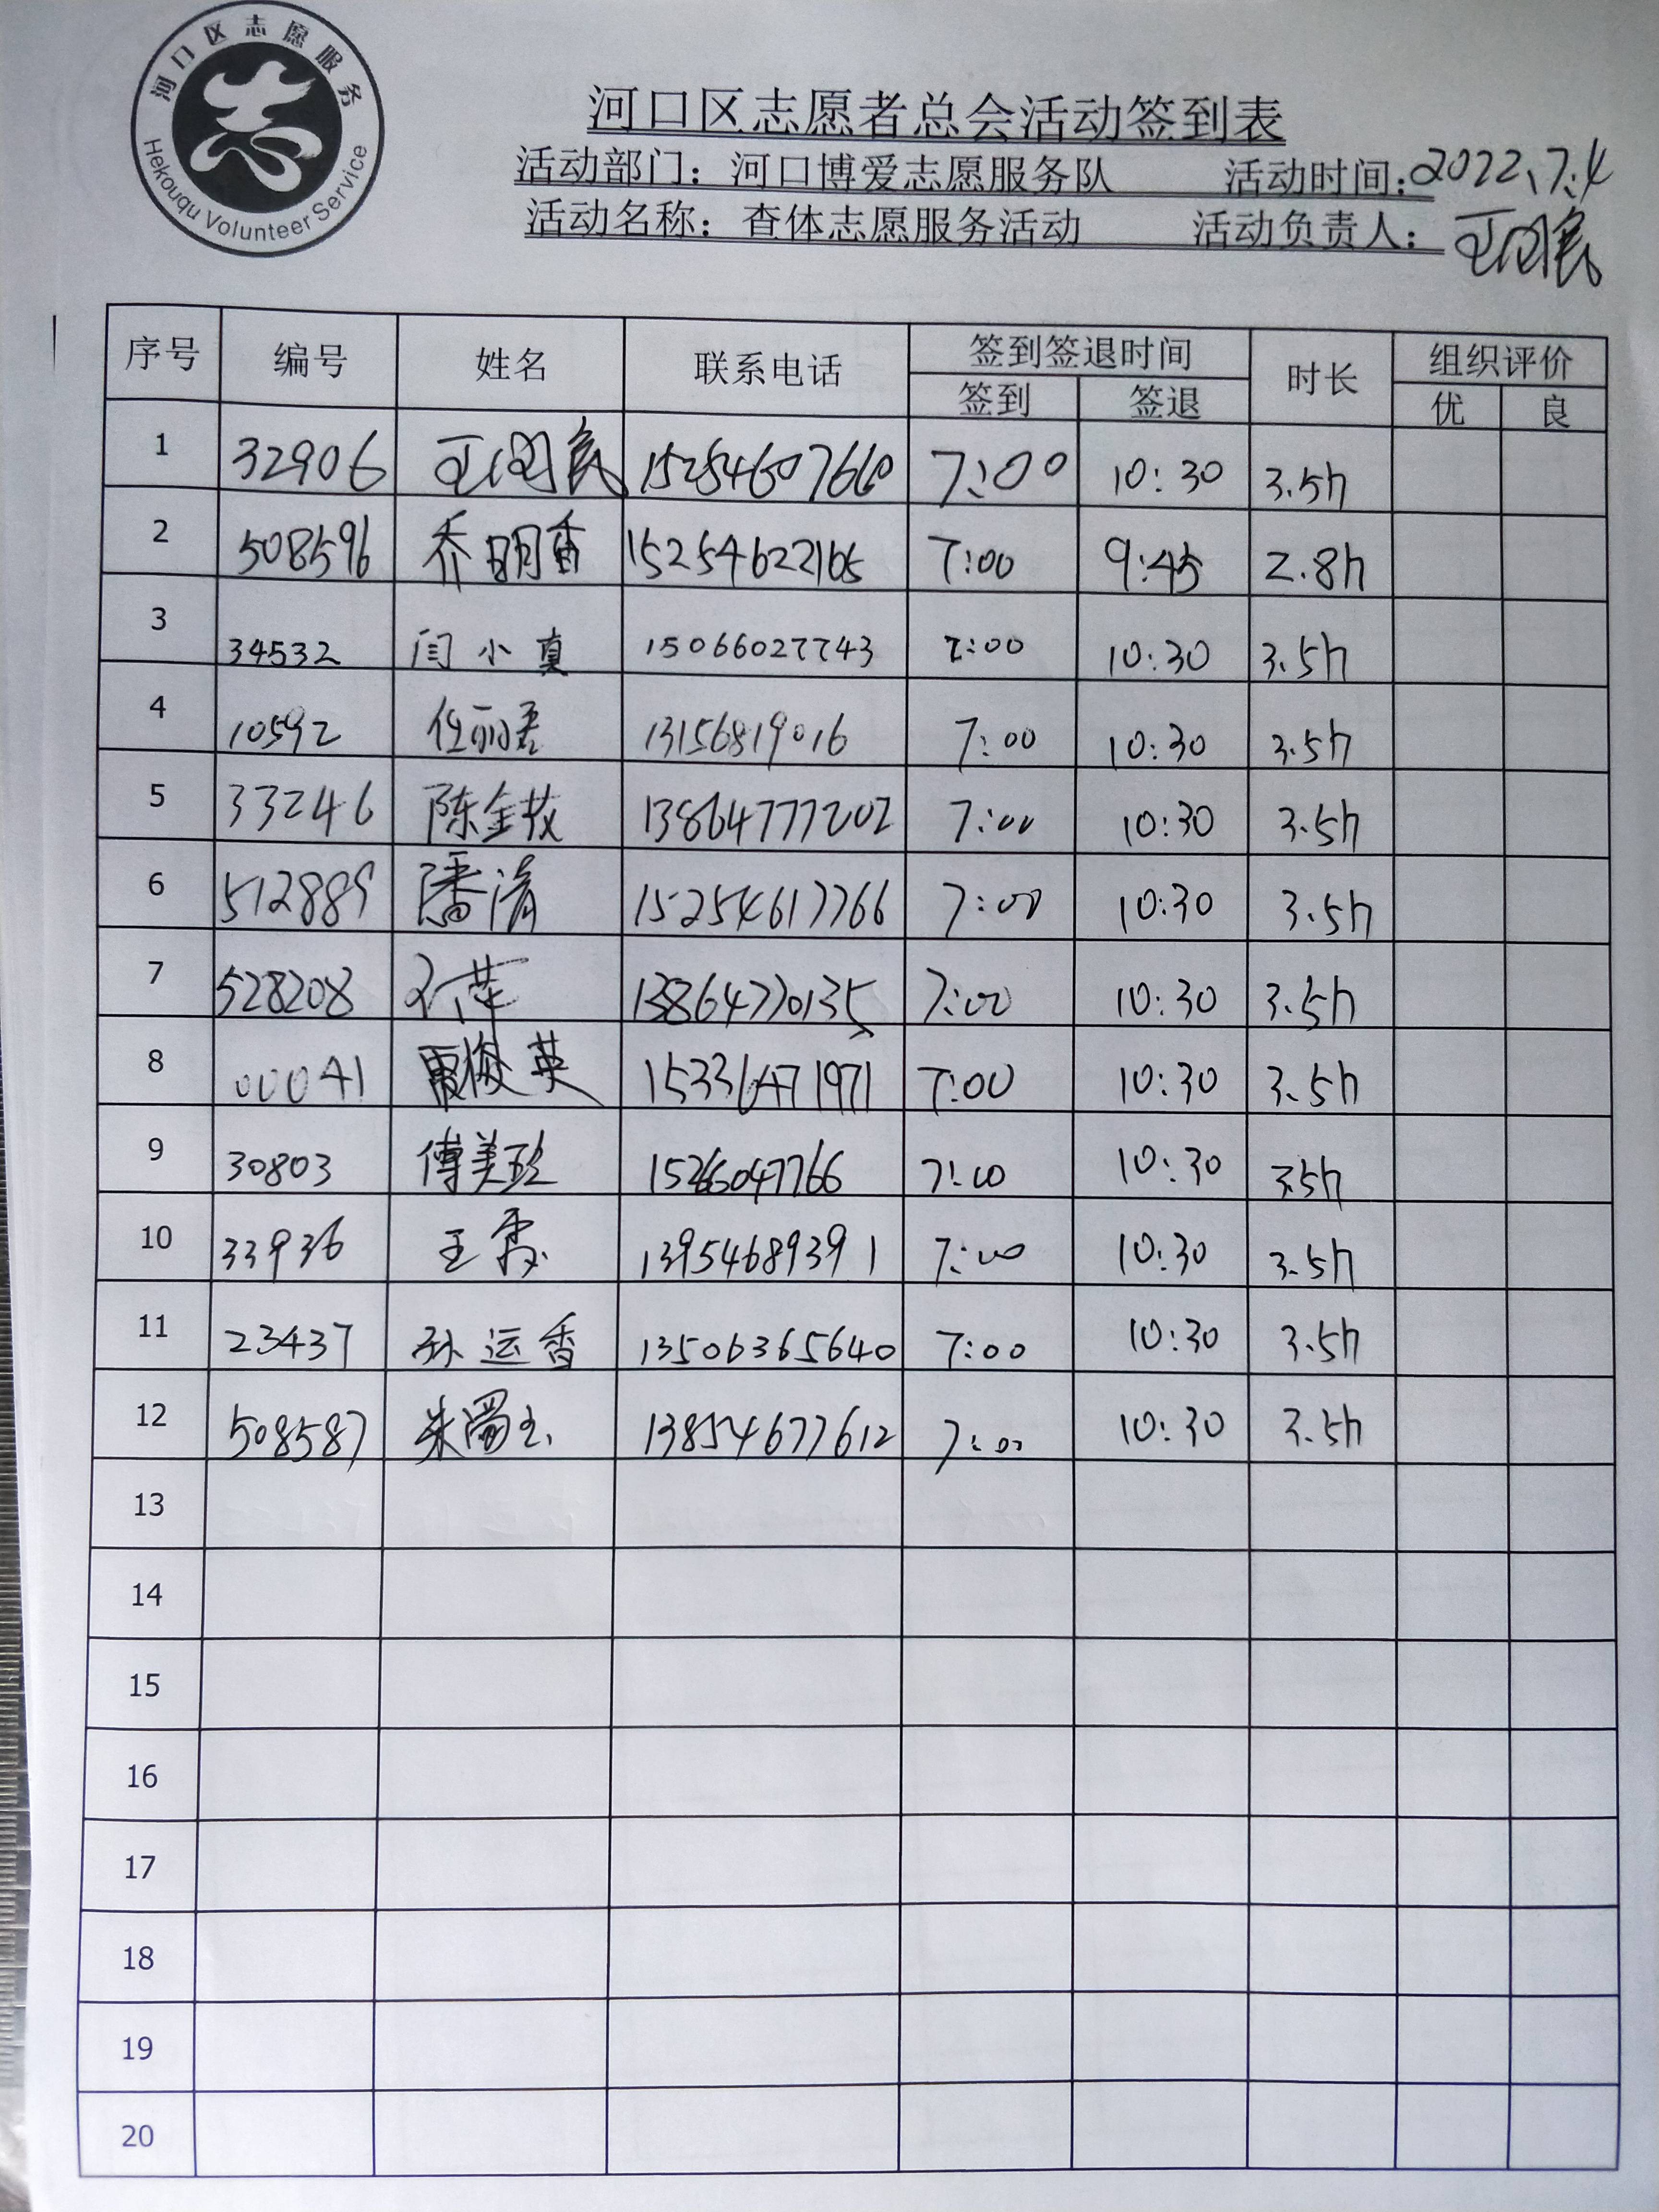 河口区志愿服务
Hekouqu Volunteer Service
河口区志愿者总会活动签到表
活动部门：河口博爱志愿服务队 活动时间：2022.7.4
活动名称：查体志愿服务活动 活动负责人：
序号 编号 姓名 联系电话 签到签退时间 时长 组织评价
签到 签退 优 良
1 32906 15254607660 7:00 10:30 3.5h
2 508596 乔明香 15254622165 7:00 9:45 2.8h
3 34532 闫小真 15066027743 7:00 10:30 3.5h
4 10592 任丽君 13156819016 7:00 10:30 3.5h
5 33246 陈金枝 13864777202 7:00 10:30 3.5h
6 512889 潘清 15254617766 7:00 10:30 3.5h
7 528208 孙萍 13864770135 7:00 10:30 3.5h
8 00041 贾俊英 15331471971 7:00 10:30 3.5h
9 30803 傅美珍 7:00 10:30 3.5h
10 33936 王霞 13954689391 7:00 10:30 3.5h
11 23437 孙运香 13506365640 7:00 10:30 3.5h
12 508587 朱 13854677612 7:00 10:30 3.5h
13
14
15
16
17
18
19
20